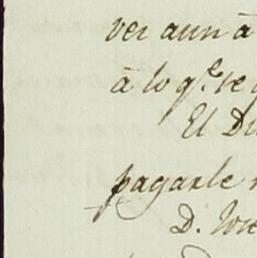 ver aun â
â lo q.e se
El Du
pagarle
D. Jose